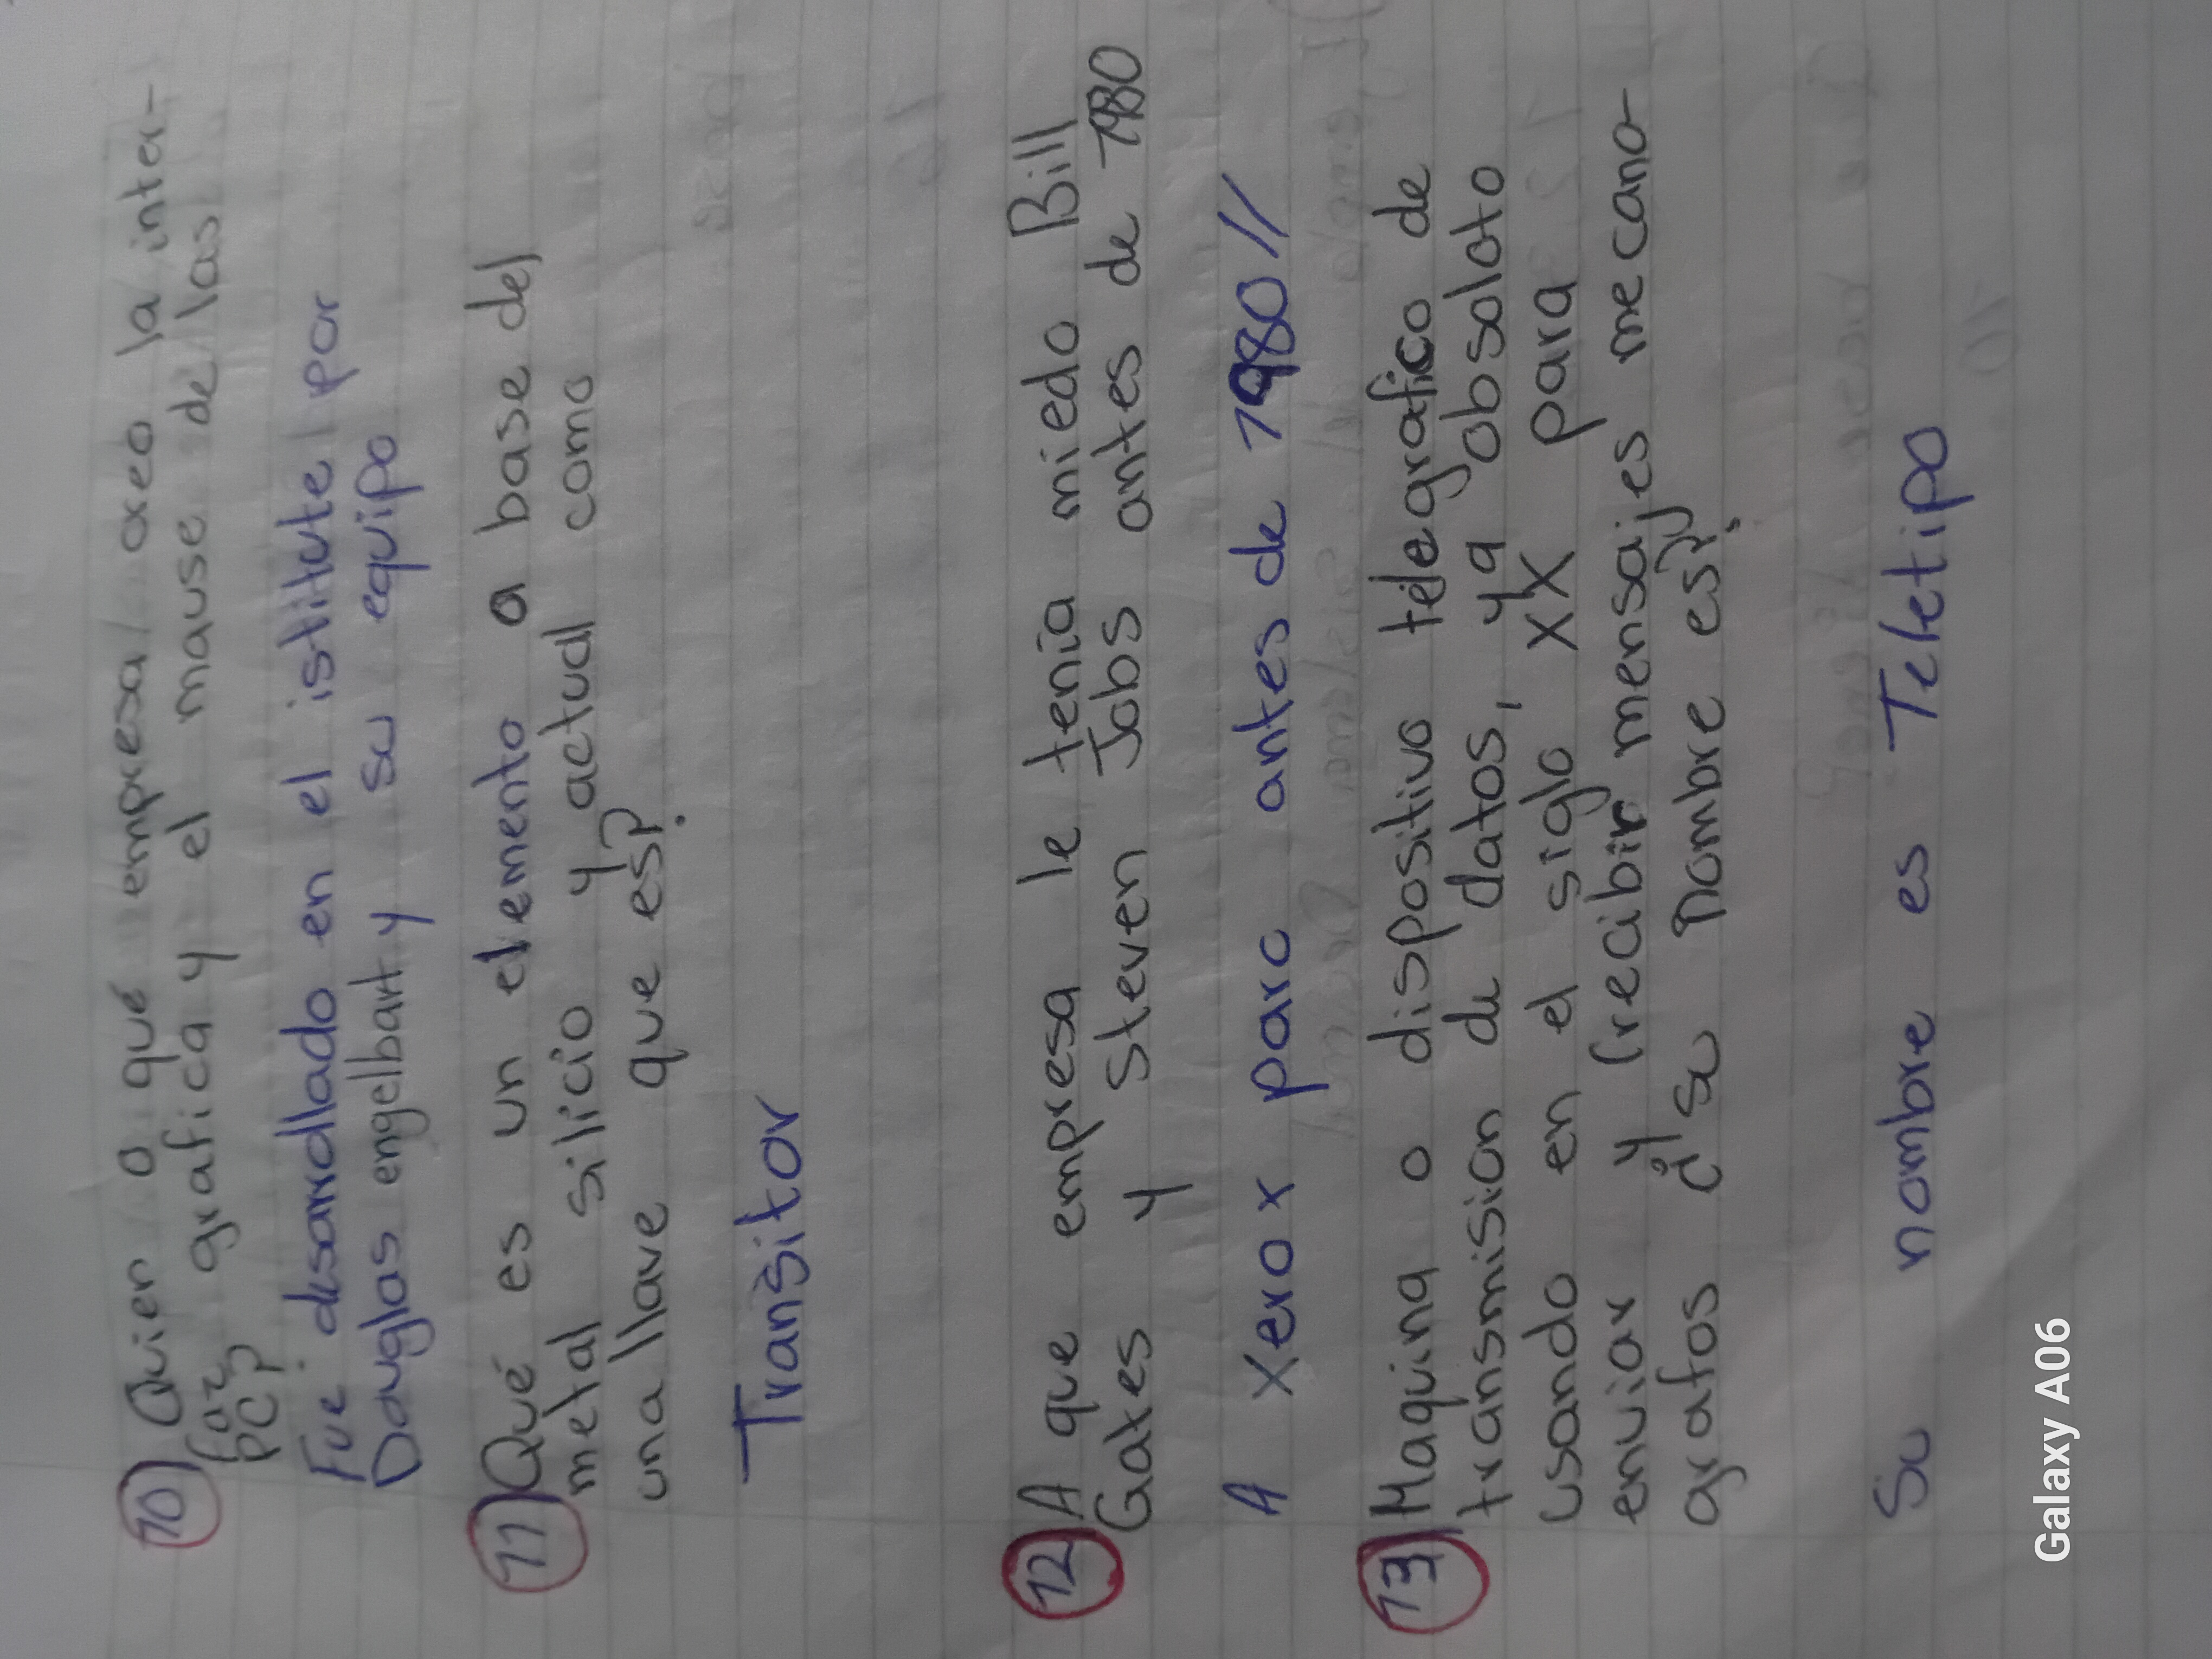 10) Quien o qué empresa creo la inter-
faz grafica y el mause de las
PC?
Fue desarrollado en el istitute por
Douglas engelbart y su equipo
11) Qué es un elemento a base del
metal silicio y actual como
una llave que es?
Transitor
12) A que empresa le tenia miedo Bill
Gates y Steven Jobs antes de 1980
A xerox parc antes de 1980//
13) Maquina o dispositivo telegrafico de
transmision de datos, ya obsoloto
usando en el siglo XX para
enviar y recibir mensajes mecano-
grafos ¿su nombre es?
Su nombre es Teletipo
Galaxy A06